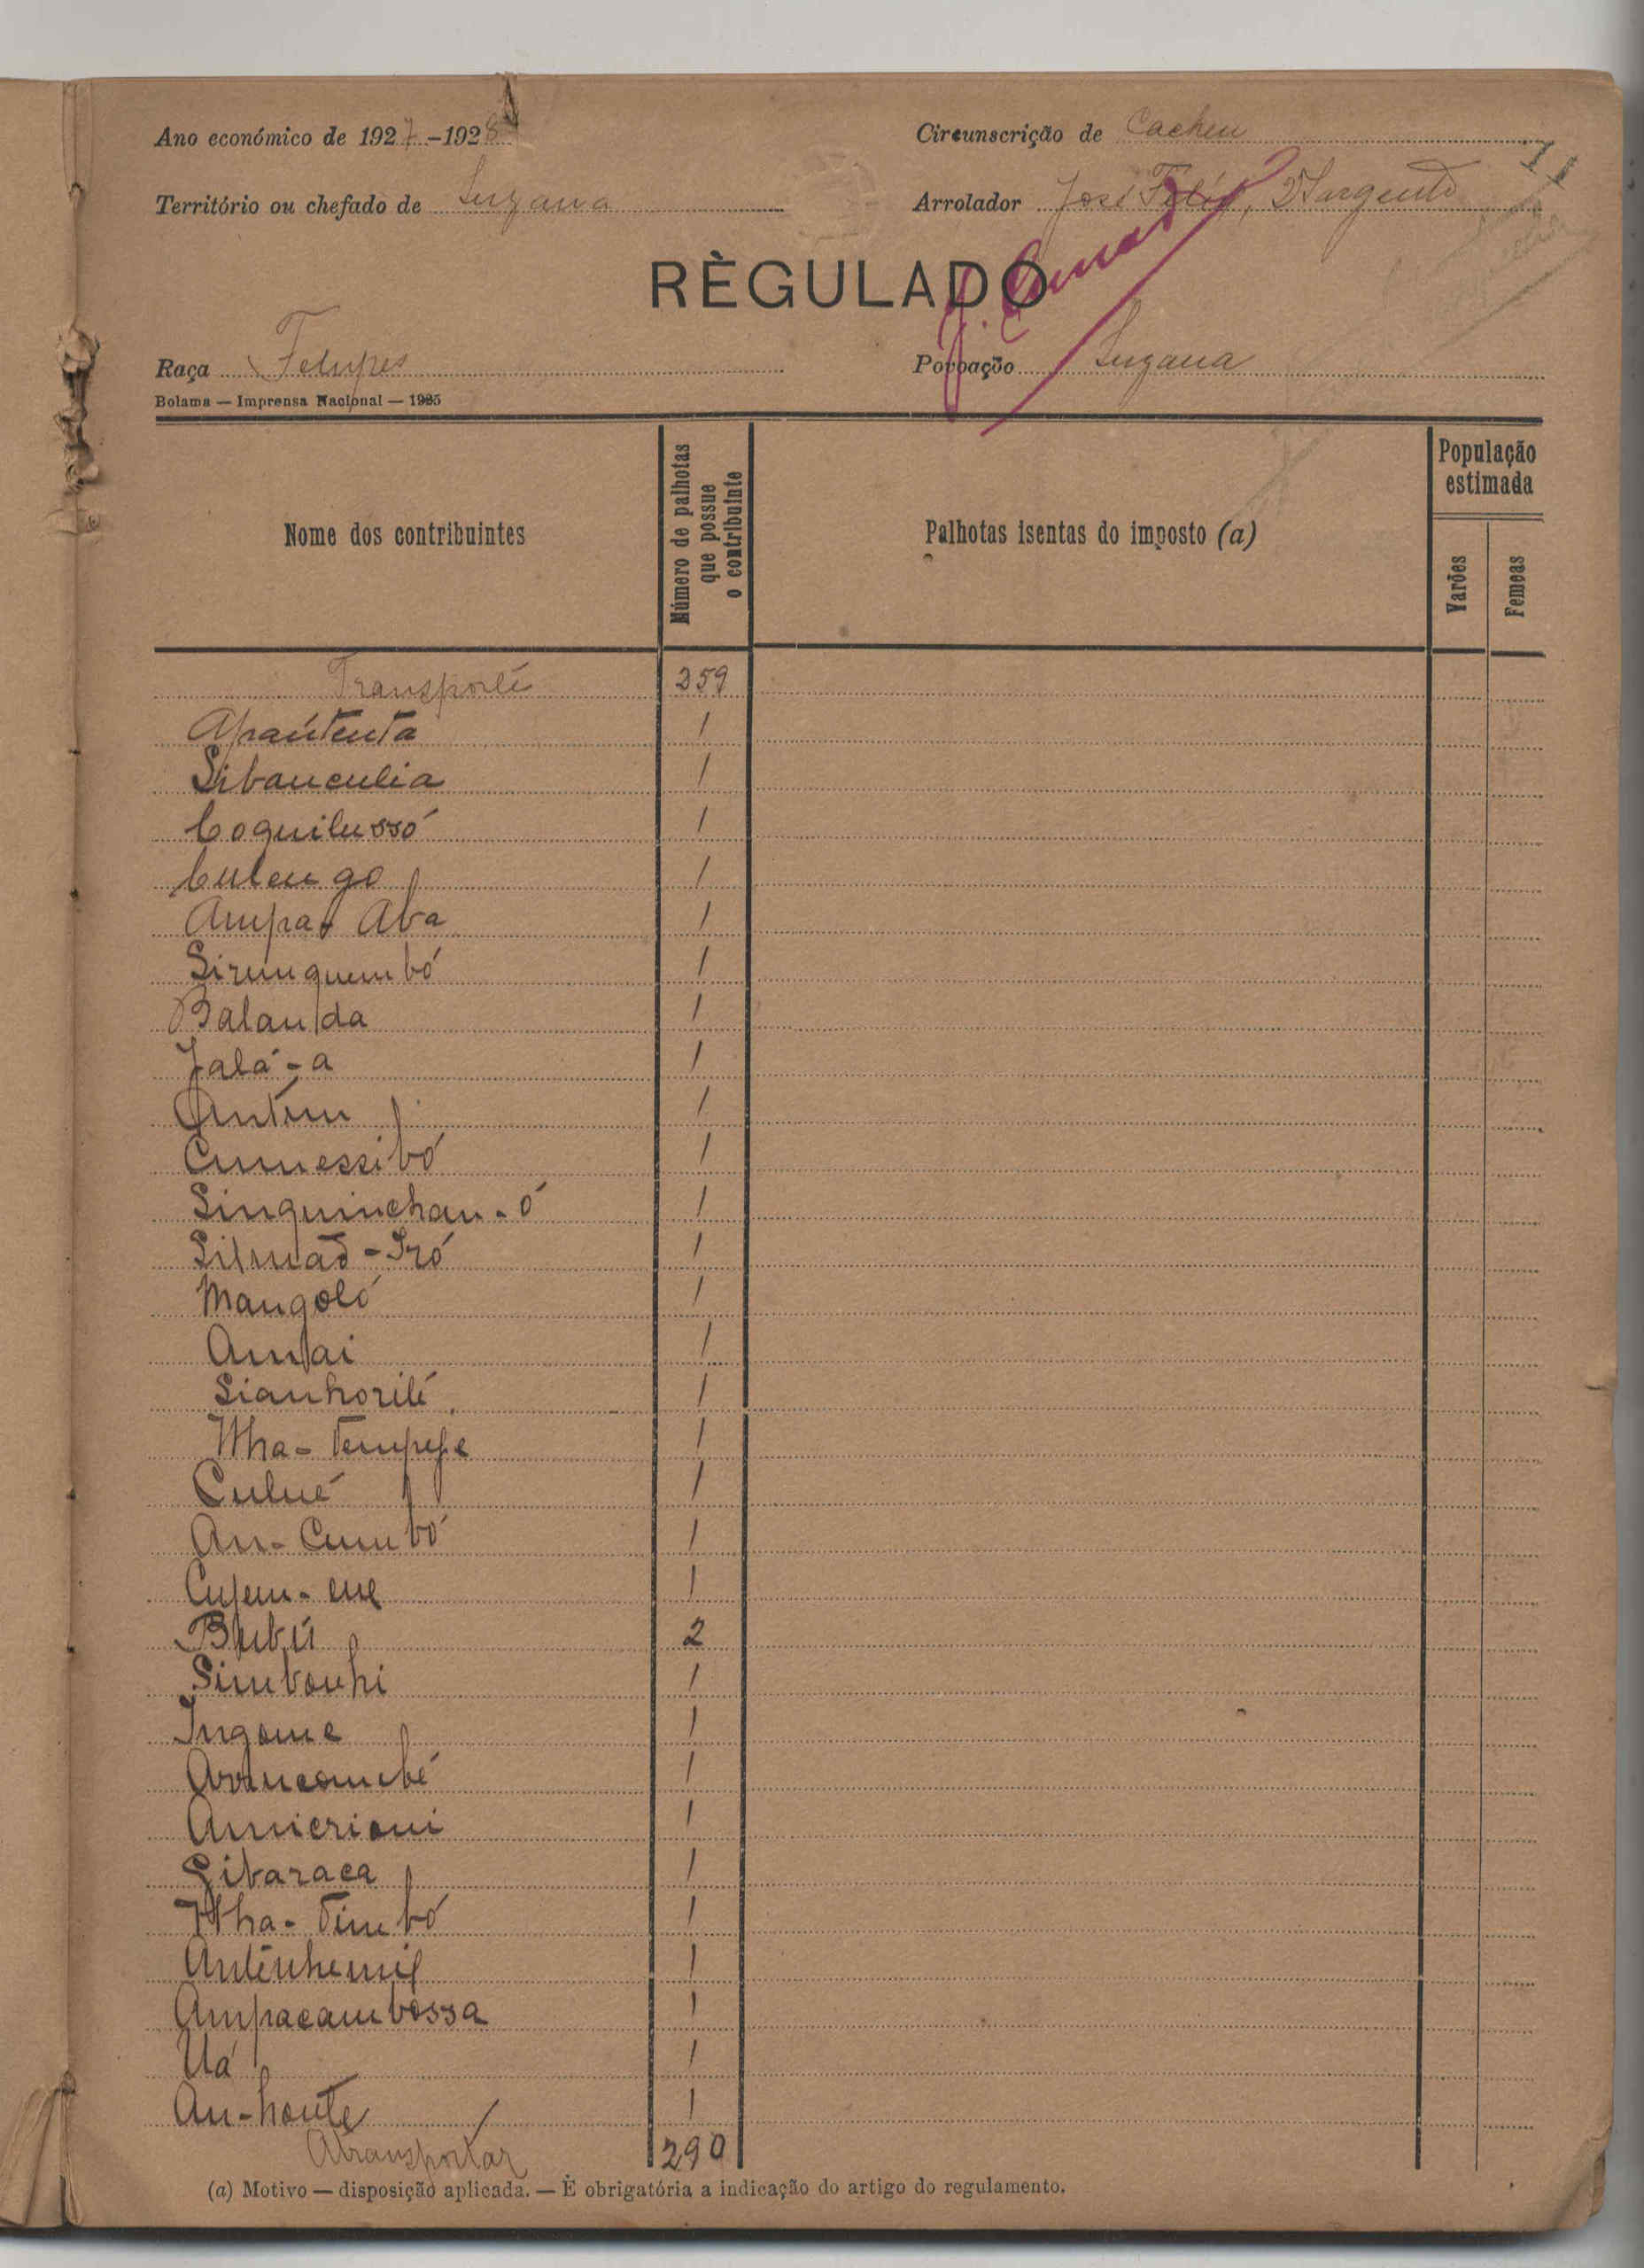 Ano económico de 1927-1928
Circunscrição de Cacheu
11
Território ou chefado de Suzana
Arrolador José Felix, 2º Sargento
RÈGULADO
Raça Felupes
Povoação Suzana
Bolama — Imprensa Nacional — 1925
Nome dos contribuintes
Número de palhotas que possue o contribuinte
Palhotas isentas do imposto (a)
População estimada
Varões
Femeas
Transporte 259
Apaútenta 1
Sibanculia 1
Coquilussó 1
Culengo 1
Ampa Aba 1
Sirunguembó 1
Balanda 1
Jalá-a 1
Antim 1
Cumessibó 1
Singuinchan-ó 1
Silmad-Iró 1
Mangoló 1
Ampai 1
Sianhorilé 1
Nha-Tempepe 1
Culué 1
An-Cumbó 1
Cujem-ene 1
Bubú 2
Simbonhi 1
Ingome 1
Arancombé 1
Amierioni 1
Sibaraca 1
Nha-Timbó 1
Anténhemil 1
Ampacambossa 1
Uá 1
An-honte 1
Atransportar 290
(a) Motivo — disposição aplicada. — È obrigatória a indicação do artigo do regulamento.